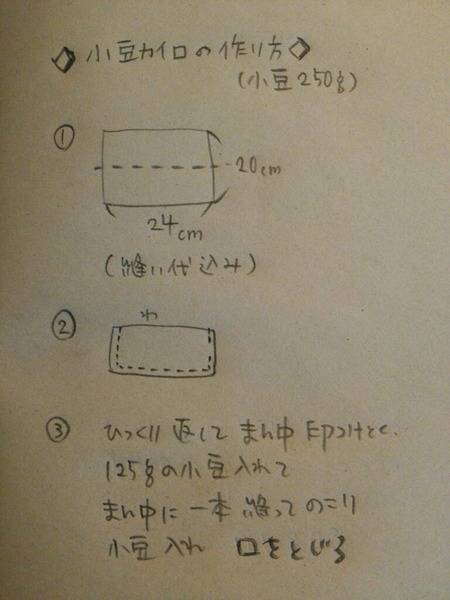 ◇小豆カイロの作り方◇
(小豆250g)
①
20cm
24cm
(縫い代込み)
②
わ
③ ひっくり返して まん中 印つけとく.
125gの小豆入れて
まん中に一本縫ってのこり
小豆入れ 口をとじる